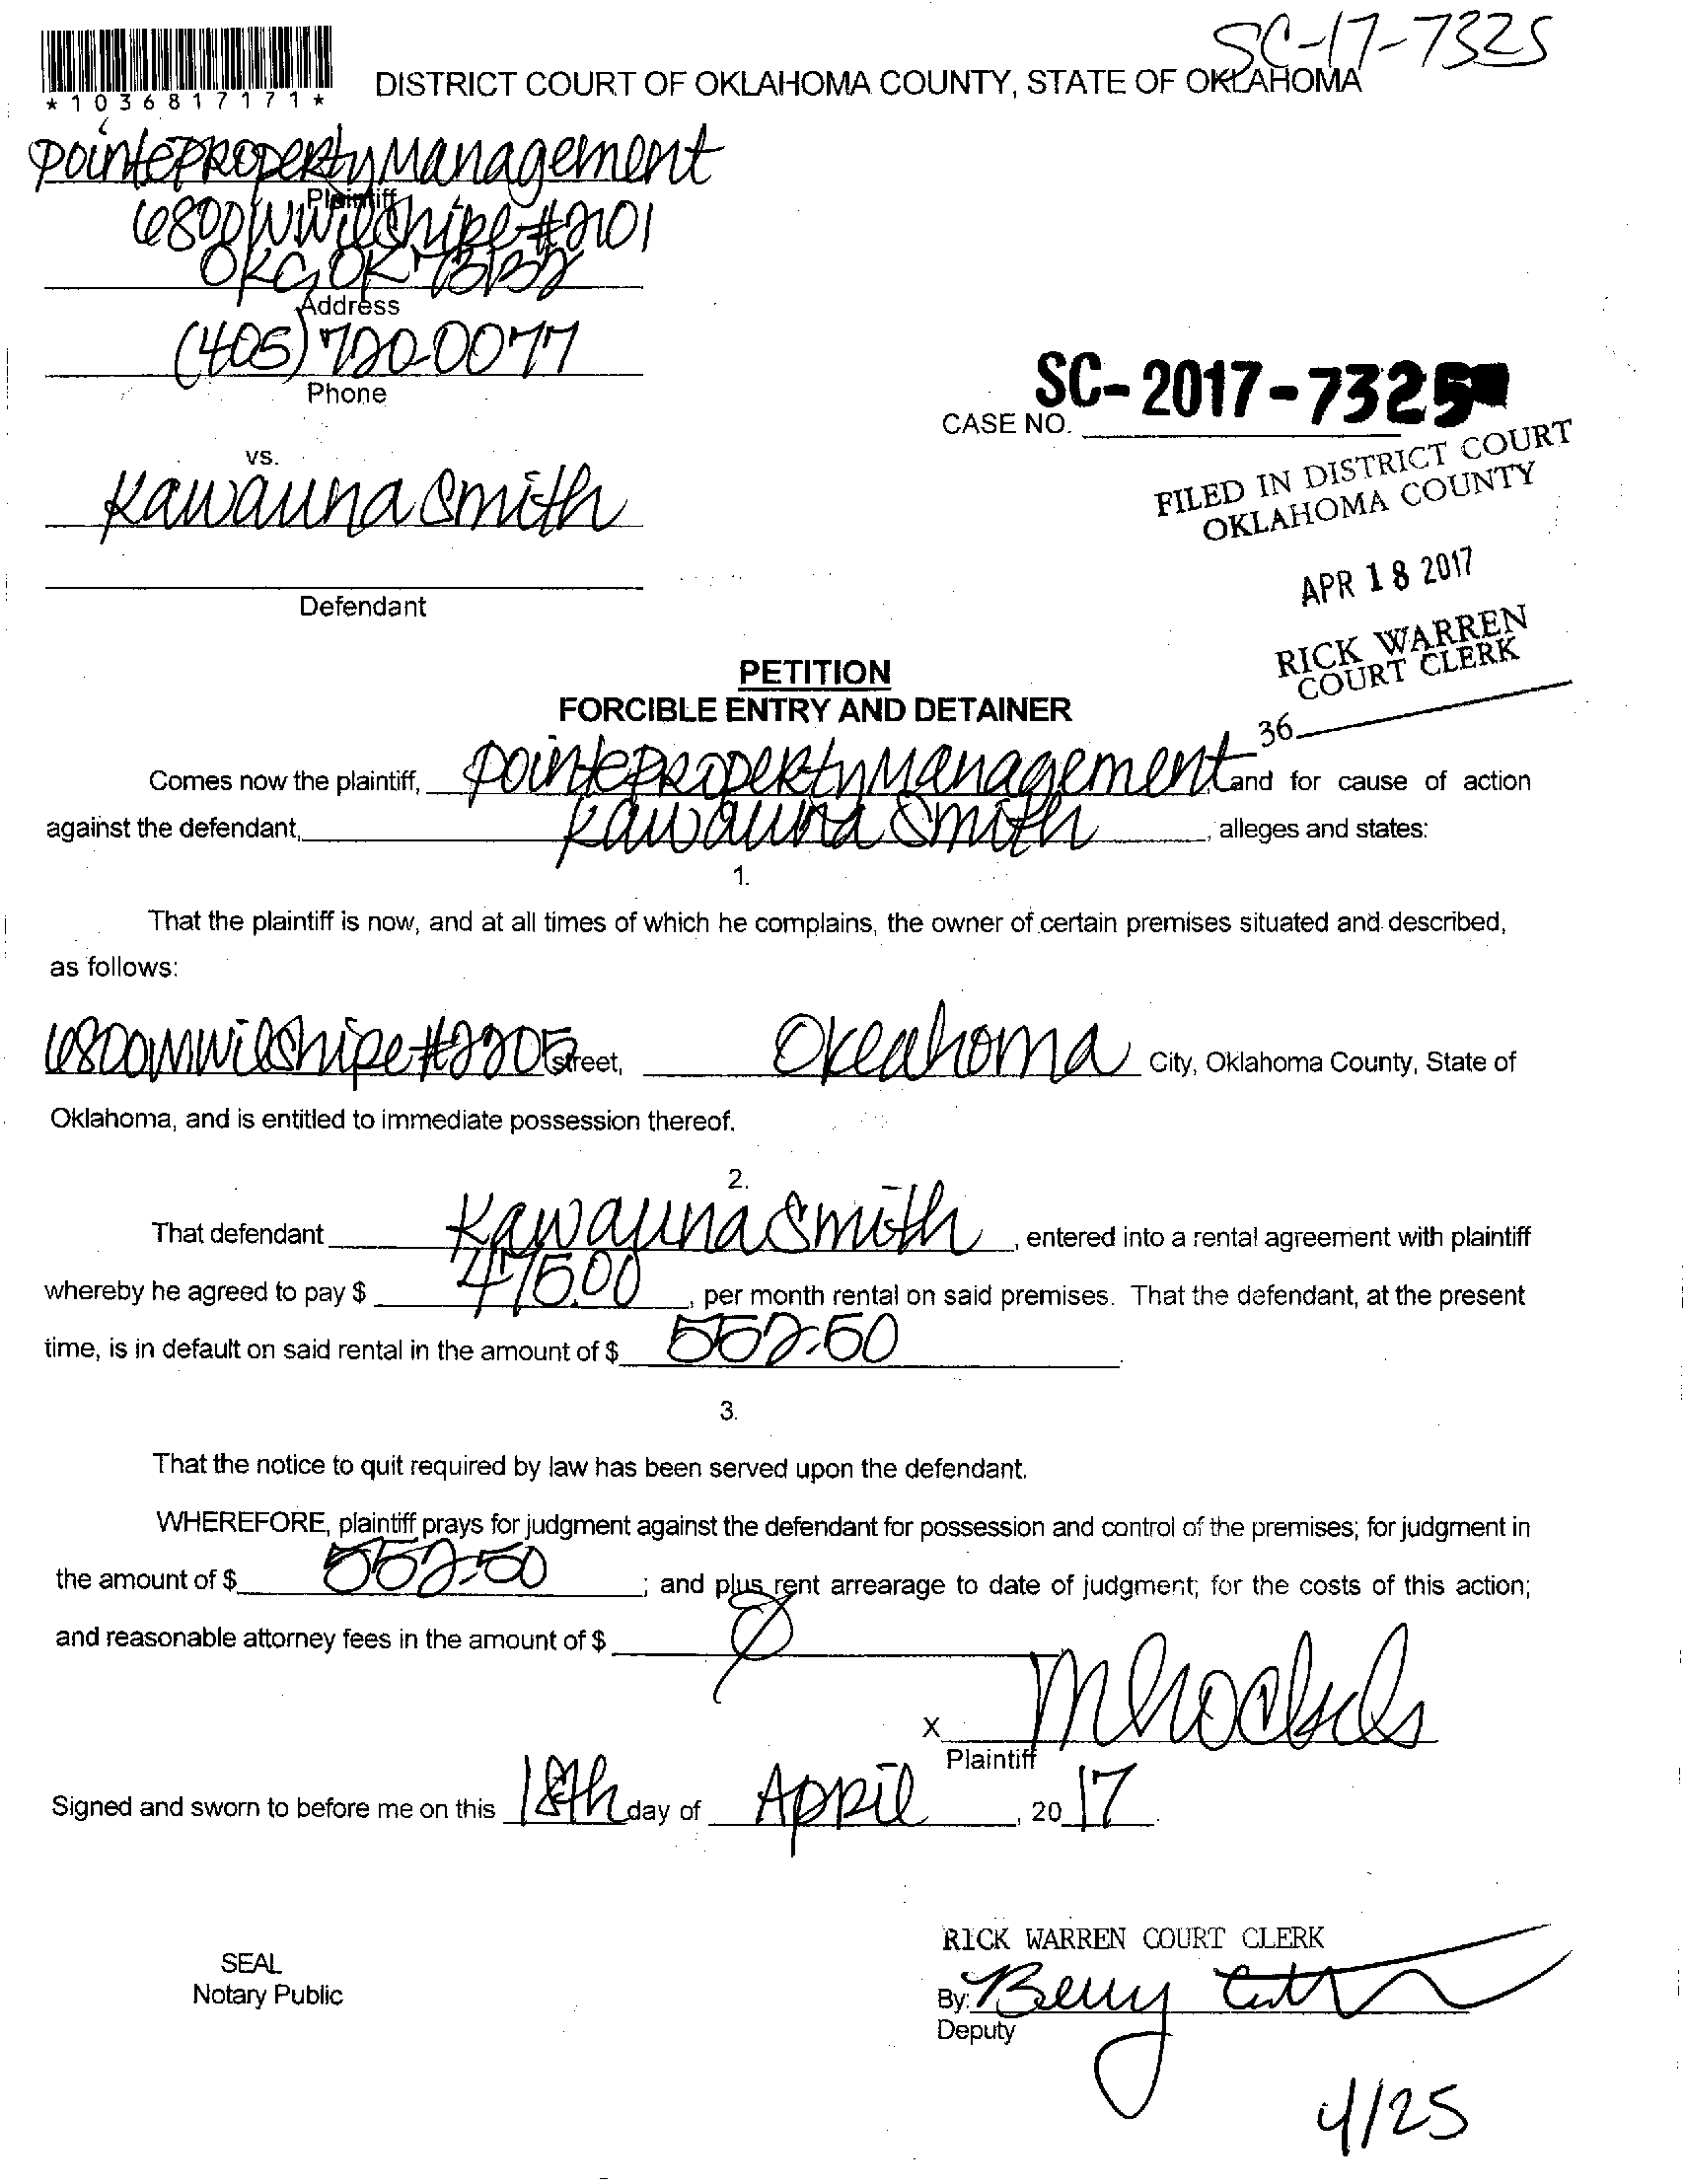 SC-17-7325
*1036817171*
DISTRICT COURT OF OKLAHOMA COUNTY, STATE OF OKLAHOMA
Pointe Property Management
Plaintiff
6800 W Wilshire #2101
OKC, OK 73132
Address
(405) 720-0077
Phone
SC-2017-7325
CASE NO.
vs.
Kawauna Smith
Defendant
FILED IN DISTRICT COURT
OKLAHOMA COUNTY
APR 18 2017
RICK WARREN
COURT CLERK
36
PETITION
FORCIBLE ENTRY AND DETAINER
Comes now the plaintiff, Pointe Property Management and for cause of action
against the defendant, Kawauna Smith, alleges and states:
1.
That the plaintiff is now, and at all times of which he complains, the owner of certain premises situated and described,
as follows:
6800 W Wilshire #2205 street, Okeahoma City, Oklahoma County, State of
Oklahoma, and is entitled to immediate possession thereof.
2.
That defendant Kawauna Smith, entered into a rental agreement with plaintiff
whereby he agreed to pay $ 475.00, per month rental on said premises. That the defendant, at the present
time, is in default on said rental in the amount of $ 552.50.
3.
That the notice to quit required by law has been served upon the defendant.
WHEREFORE, plaintiff prays for judgment against the defendant for possession and control of the premises; for judgment in
the amount of $ 552.50; and plus rent arrearage to date of judgment; for the costs of this action;
and reasonable attorney fees in the amount of $ Ø
X
Plaintiff
Signed and sworn to before me on this 18th day of April, 20 17.
RICK WARREN COURT CLERK
SEAL
Notary Public
By:
Deputy
4/25